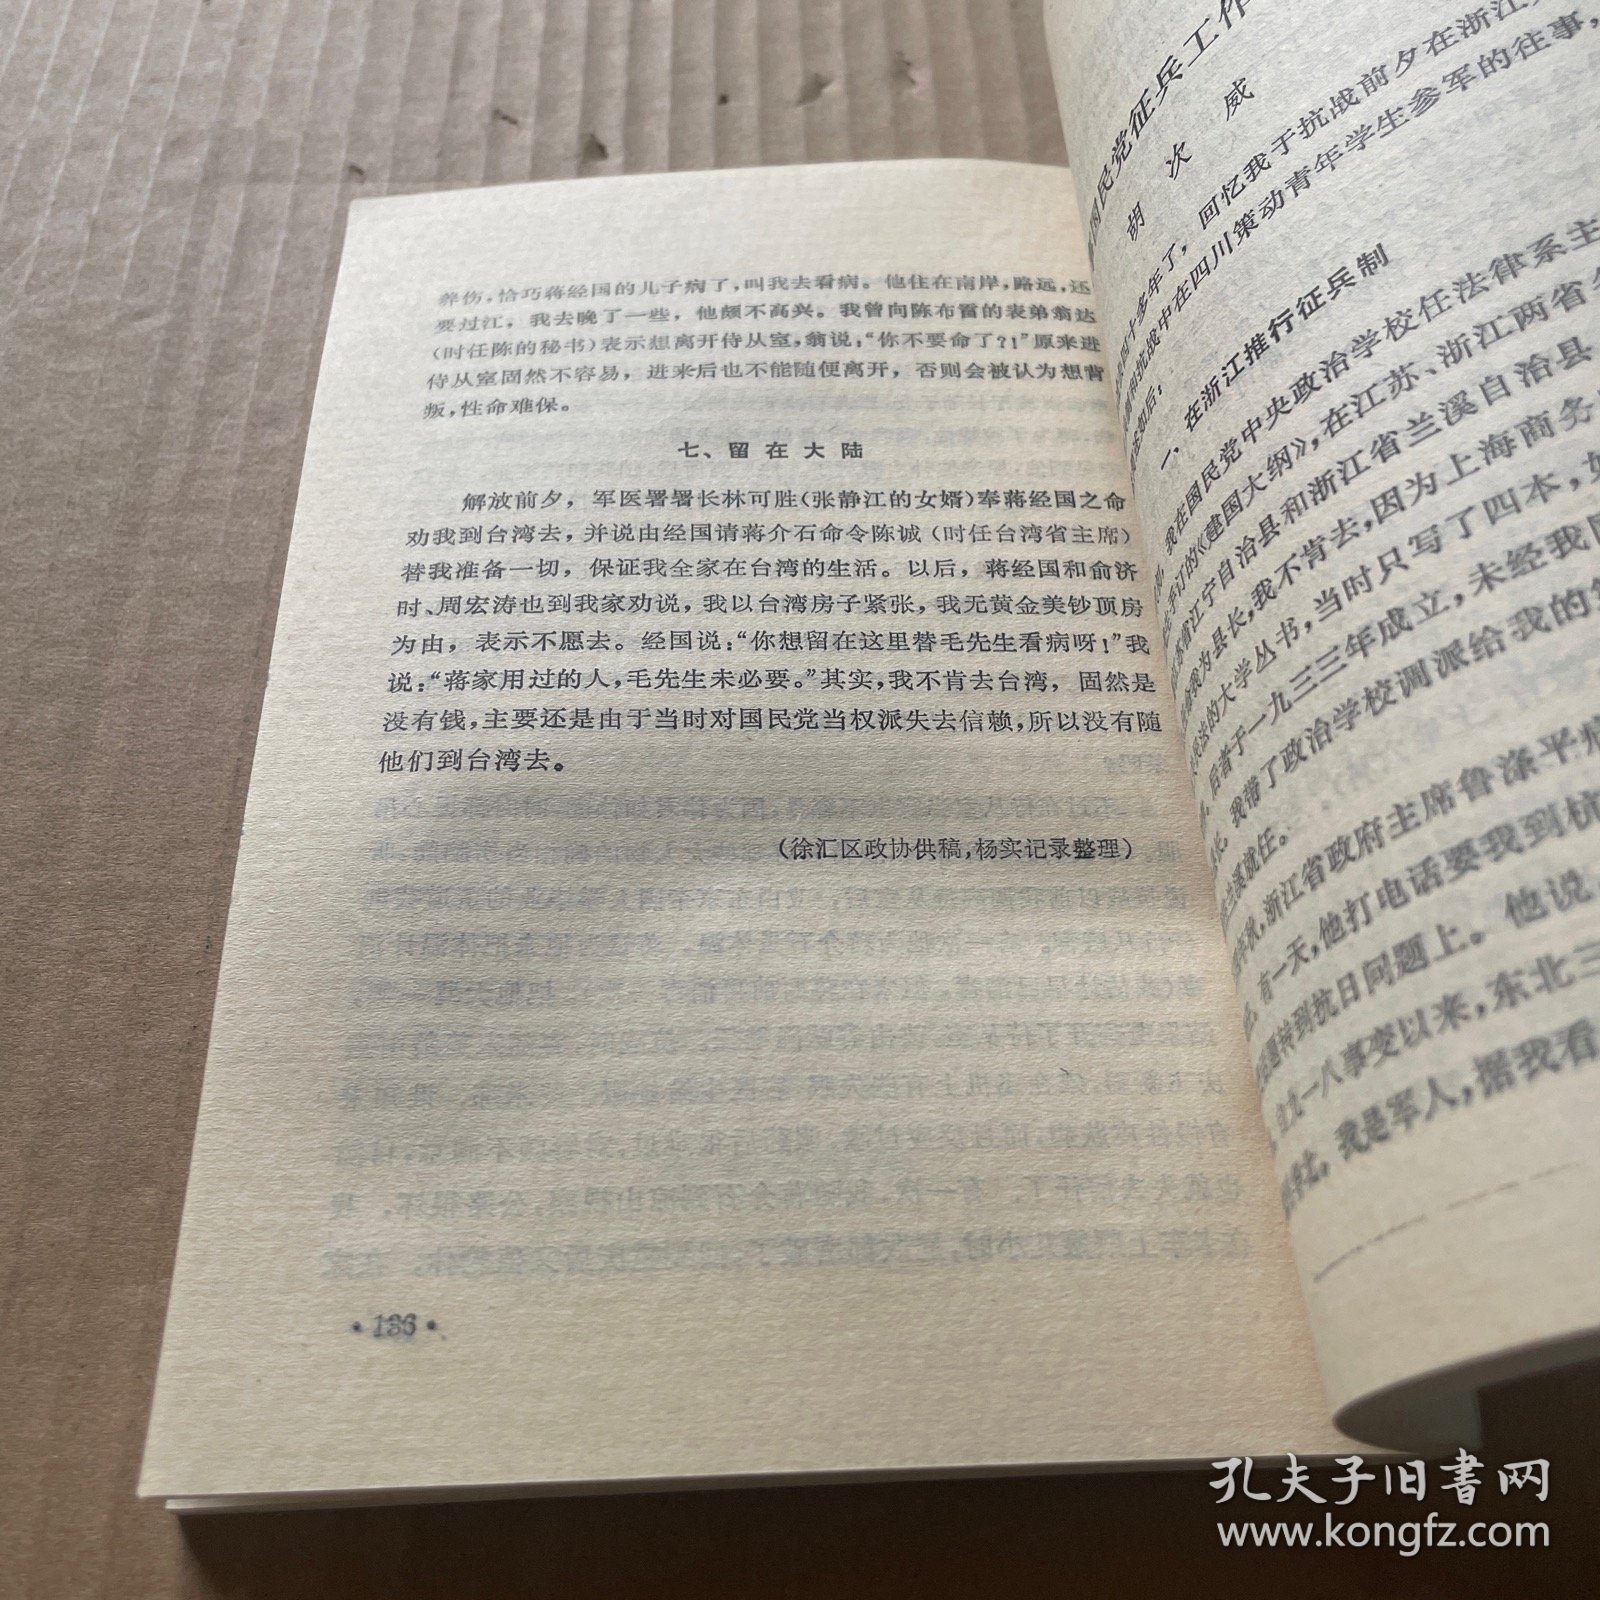 养伤，恰巧蒋经国的儿子病了，叫我去看病。他住在南岸，路远，还
要过江，我去晚了一些，他颇不高兴。我曾向陈布雷的表弟翁达
（时任陈的秘书）表示想离开侍从室，翁说：“你不要命了？！”原来进
侍从室固然不容易，进来后也不能随便离开，否则会被认为想背
叛，性命难保。
七、留在大陆
解放前夕，军医署署长林可胜（张静江的女婿）奉蒋经国之命
劝我到台湾去，并说由经国请蒋介石命令陈诚（时任台湾省主席）
替我准备一切，保证我全家在台湾的生活。以后，蒋经国和俞济
时、周宏涛也到我家劝说，我以台湾房子紧张，我无黄金美钞顶房
为由，表示不愿去。经国说：“你想留在这里替毛先生看病呀！”我
说：“蒋家用过的人，毛先生未必要。”其实，我不肯去台湾，固然是
没有钱，主要还是由于当时对国民党当权派失去信赖，所以没有随
他们到台湾去。
（徐汇区政协供稿，杨实记录整理）
·136·
国民党征兵工作
胡次威
四十多年了，回忆我于抗战前夕在浙江
和抗战中在四川策动青年学生参军的往事，
如后：
一、在浙江推行征兵制
，我在国民党中央政治学校任法律系主
手订的《建国大纲》，在江苏、浙江两省各
省江宁自治县和浙江省兰溪自治县
我为县长，我不肯去，因为上海商务
民法的大学丛书，当时只写了四本，如
，后者于一九三三年成立，未经我同
长，我带了政治学校调派给我的
兰溪就任。
年秋，浙江省政府主席鲁涤平病
，有一天，他打电话要我到杭
话题转到抗日问题上。他说
九一八事变以来，东北三
，我是军人，据我看
孔夫子旧书网
www.kongfz.com